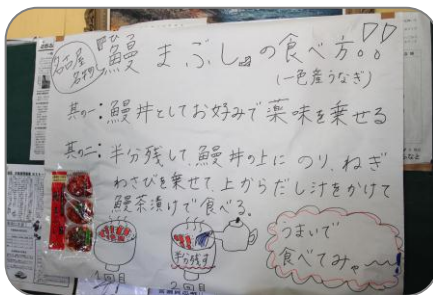 名古屋名物
『ひつまぶし』の食べ方!!
鰻
(一色産うなぎ)
其の一:鰻丼としてお好みで薬味を乗せる
其の二:半分残して、鰻丼の上に のり、ねぎ
わさびを乗せて、上からだし汁をかけて
鰻茶漬けで食べる。
1回目
半分残す
2回目
うまいで
食べてみゃ〜